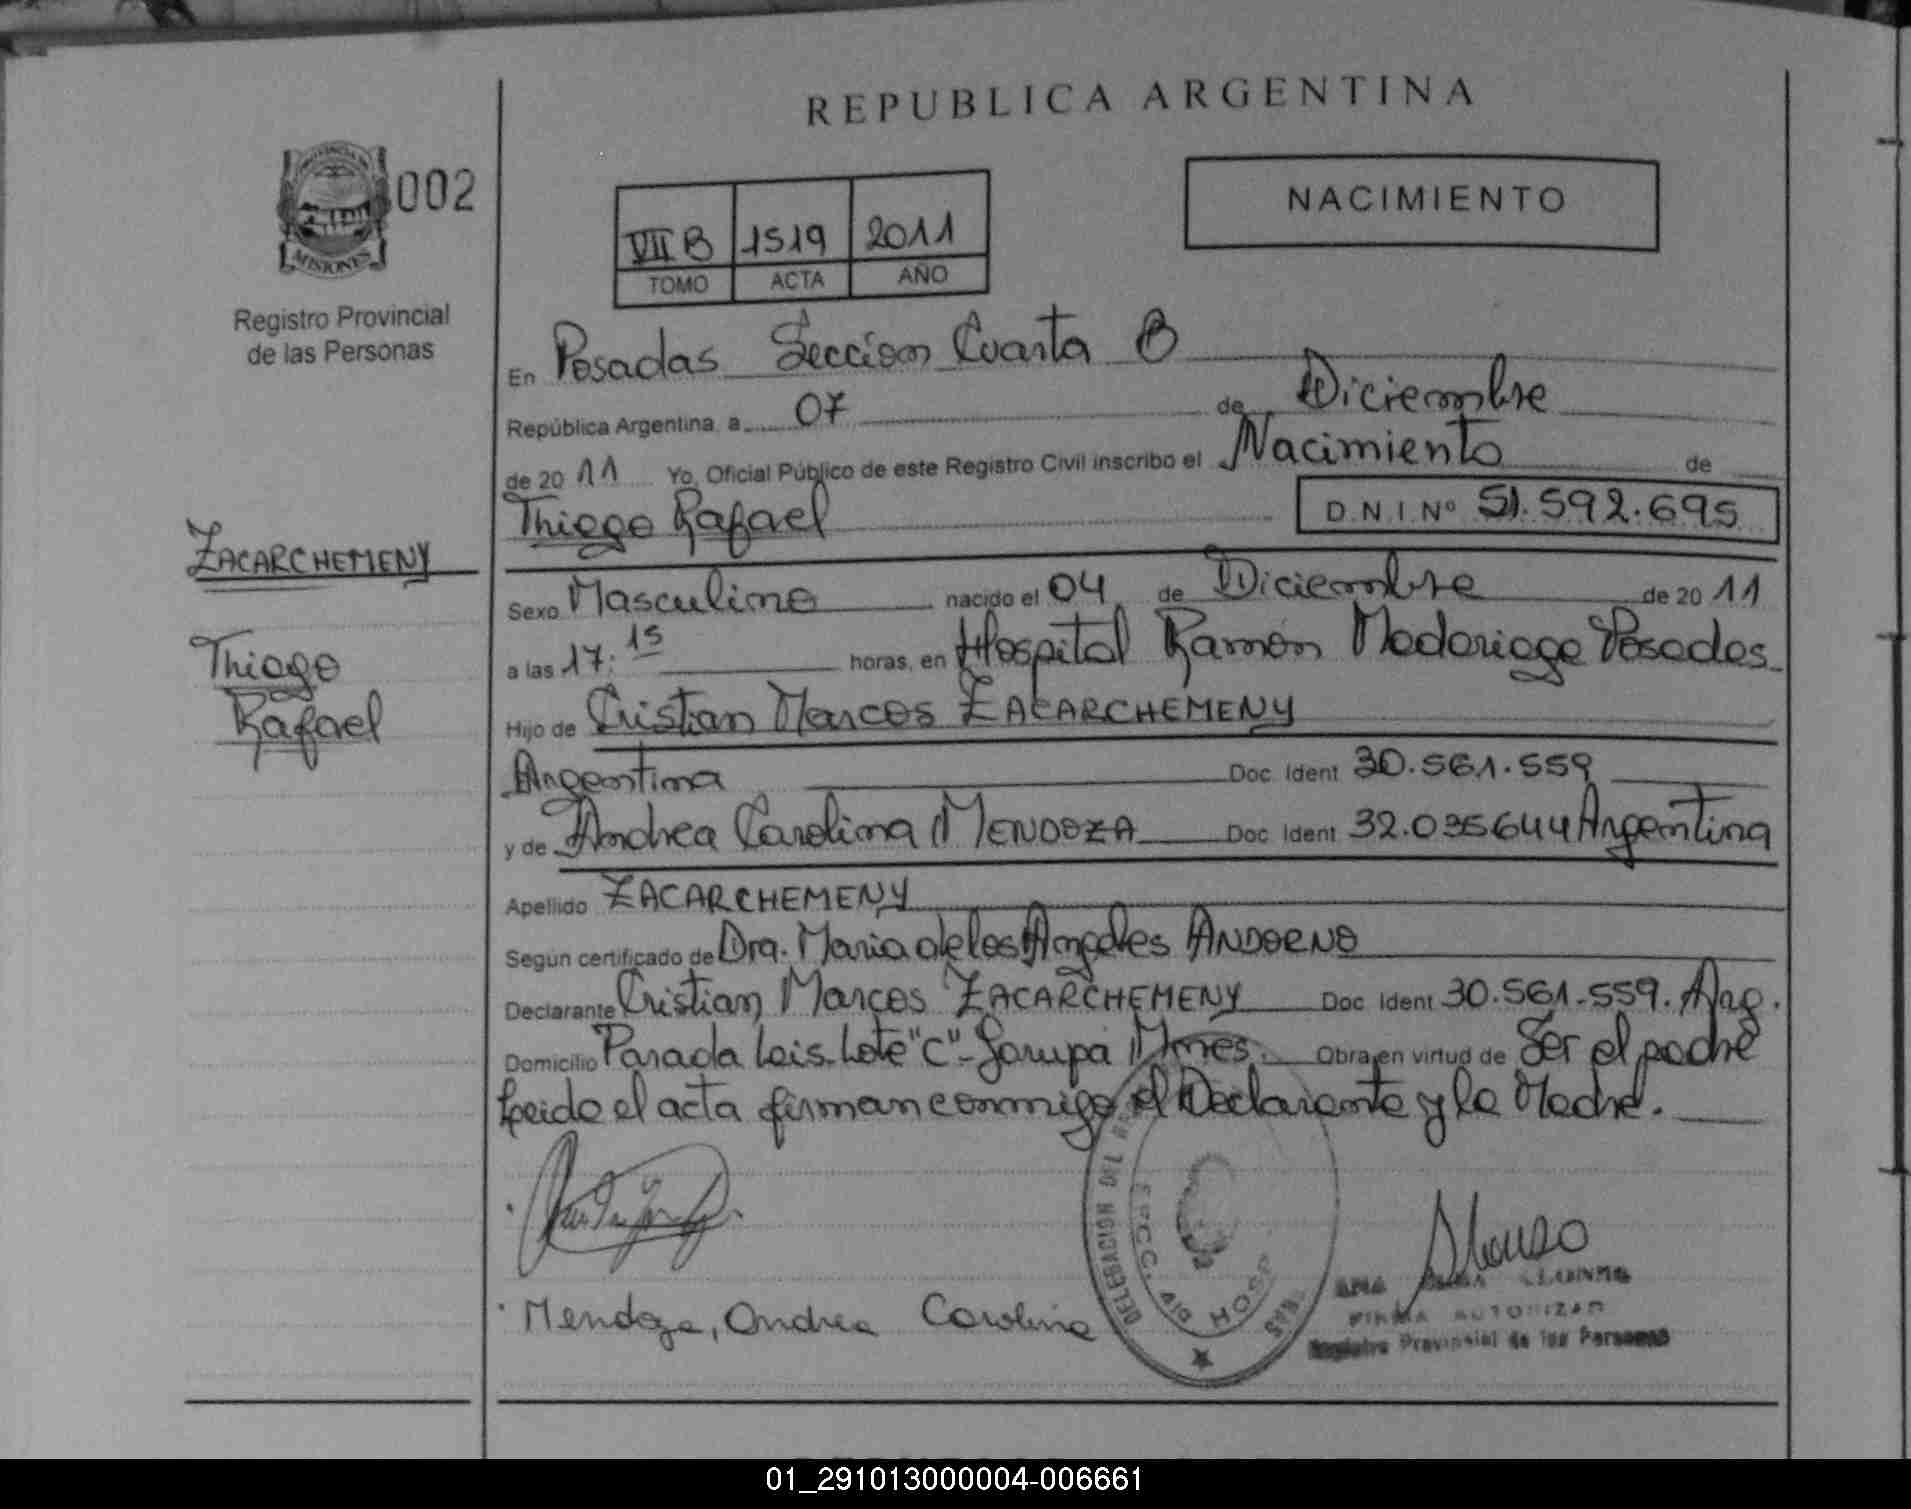 REPUBLICA ARGENTINA
PROVINCIA DE
MISIONES
002
Registro Provincial
de las Personas
VII B 1519 2011
TOMO ACTA AÑO
NACIMIENTO
En Posadas Seccion Cuarta B
República Argentina, a 07 de Diciembre
de 20 11 Yo, Oficial Público de este Registro Civil inscribo el Nacimiento de
Thiago Rafael D.N.I. Nº 51.592.695
ZACARCHEMENY
Thiago
Rafael
Sexo Masculino nacido el 04 de Diciembre de 20 11
a las 17:15 horas, en Hospital Ramón Madariaga Posadas
Hijo de Cristian Marcos ZACARCHEMENY
Argentina Doc. Ident 30.561.559
y de Andrea Carolina MENDOZA Doc. Ident 32.035644 Argentina
Apellido ZACARCHEMENY
Según certificado de Dra. Maria de los Angeles ANDORNO
Declarante Cristian Marcos ZACARCHEMENY Doc. Ident 30.561.559. Arg.
Domicilio Parada Leis Lote "C"- Garupá Mnes. Obra en virtud de Ser el padre
Leida el acta firman conmigo el Declarante y la Madre.
Mendoza, Andrea Carolina
DELEGACION DEL
SECC. HOSP
Alonso
ANA ALONSO
FIRMA AUTORIZAD
Registro Provincial de las Personas
01_291013000004-006661